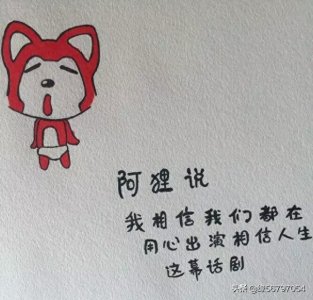 阿狸说
我相信我们都在
用心出演相信人生
这幕话剧